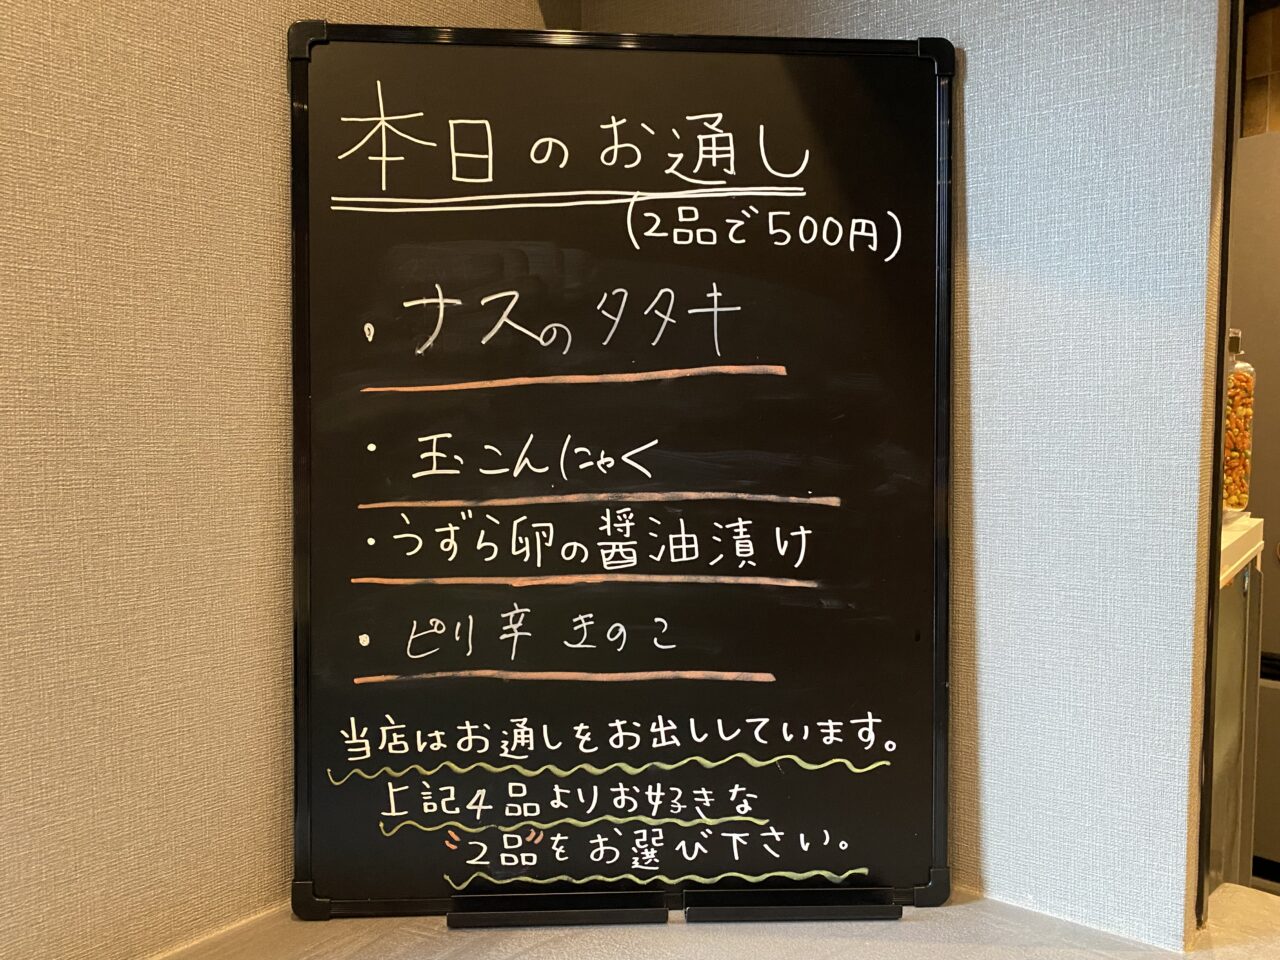 本日のお通し
(2品で500円)
・ナスのタタキ
・玉こんにゃく
・うずら卵の醤油漬け
・ピリ辛きのこ
当店はお通しをお出ししています。
上記4品よりお好きな
"2品"をお選び下さい。